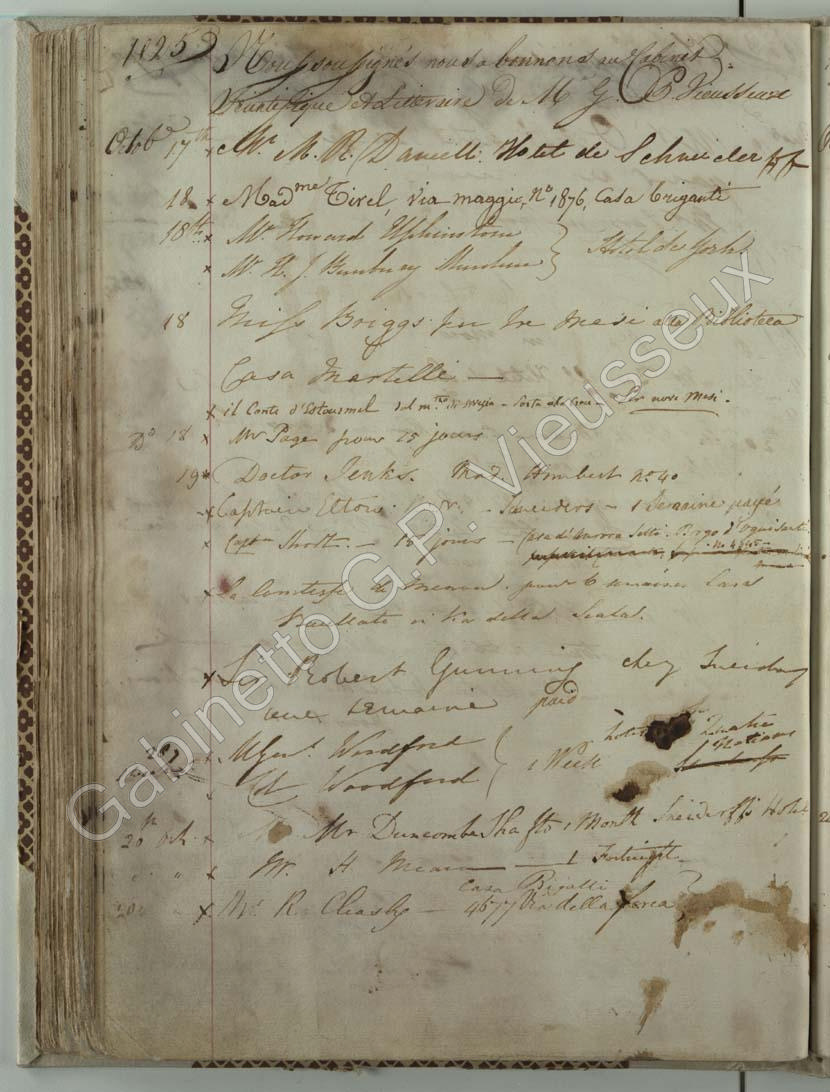 Nous soussignés nous abonnons au Cabinet
Scientifique et Litteraire de Mr G. P. Vieusseux
Octobe 17th Mr. M. R. Danielli Hotel de Schneiderff
18 Madme Tirel, Via maggio, No 1876, Casa briganti
18th Mr. Howard Elphinstone
Mr. H. J. Bunbury
Hotel de York
18 Miss Briggs per tre mesi alla Biblioteca
Casa Martelli —
il Conte d'Estourmel Porta alla Croce - Per nove Mesi.
Do 18 Mr Page pour 15 jours
19 Doctor Jenks. Mad. Humbert no 40
Captain Elton - Sneiders - 1 Semaine payé
Captn Short. - 15 jours - Borgo d'Ognisanti
La Comtesse de pour 6 semaines Casa
in Via della Scala.
Sir Robert Gunning chez Sneiders
une semaine paid
Mr Genl. Woodford
Col Woodford
1 Week
hotel
quatre
Nations
20th Oct. Mr Duncombe Shafto 1 Month Sneiderff's Hotel
" " W. H. — 1 Fortnight
20 Mr. R. Cleasby — Casa
4677 Via della
Gabinetto G.P. Vieusseux